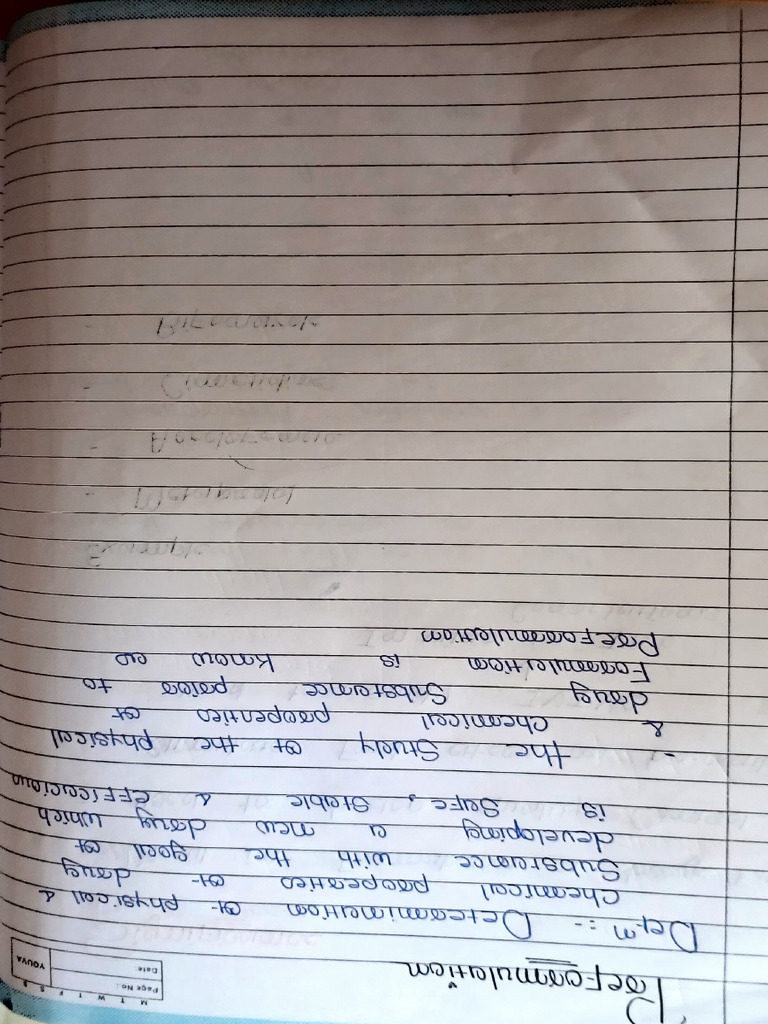 M T W T F S S
Page No.:
Date:
YOUVA
Preformulation
Defn :- Determination of physical &
chemical properties of drug
substance with the goal of
developing a new drug which
is safe, stable & efficacious
- the study of the physical
& chemical properties of
drug substance prior to
Formulation is know as
Preformulation
Example
- Metaproterol
- Cimetidine